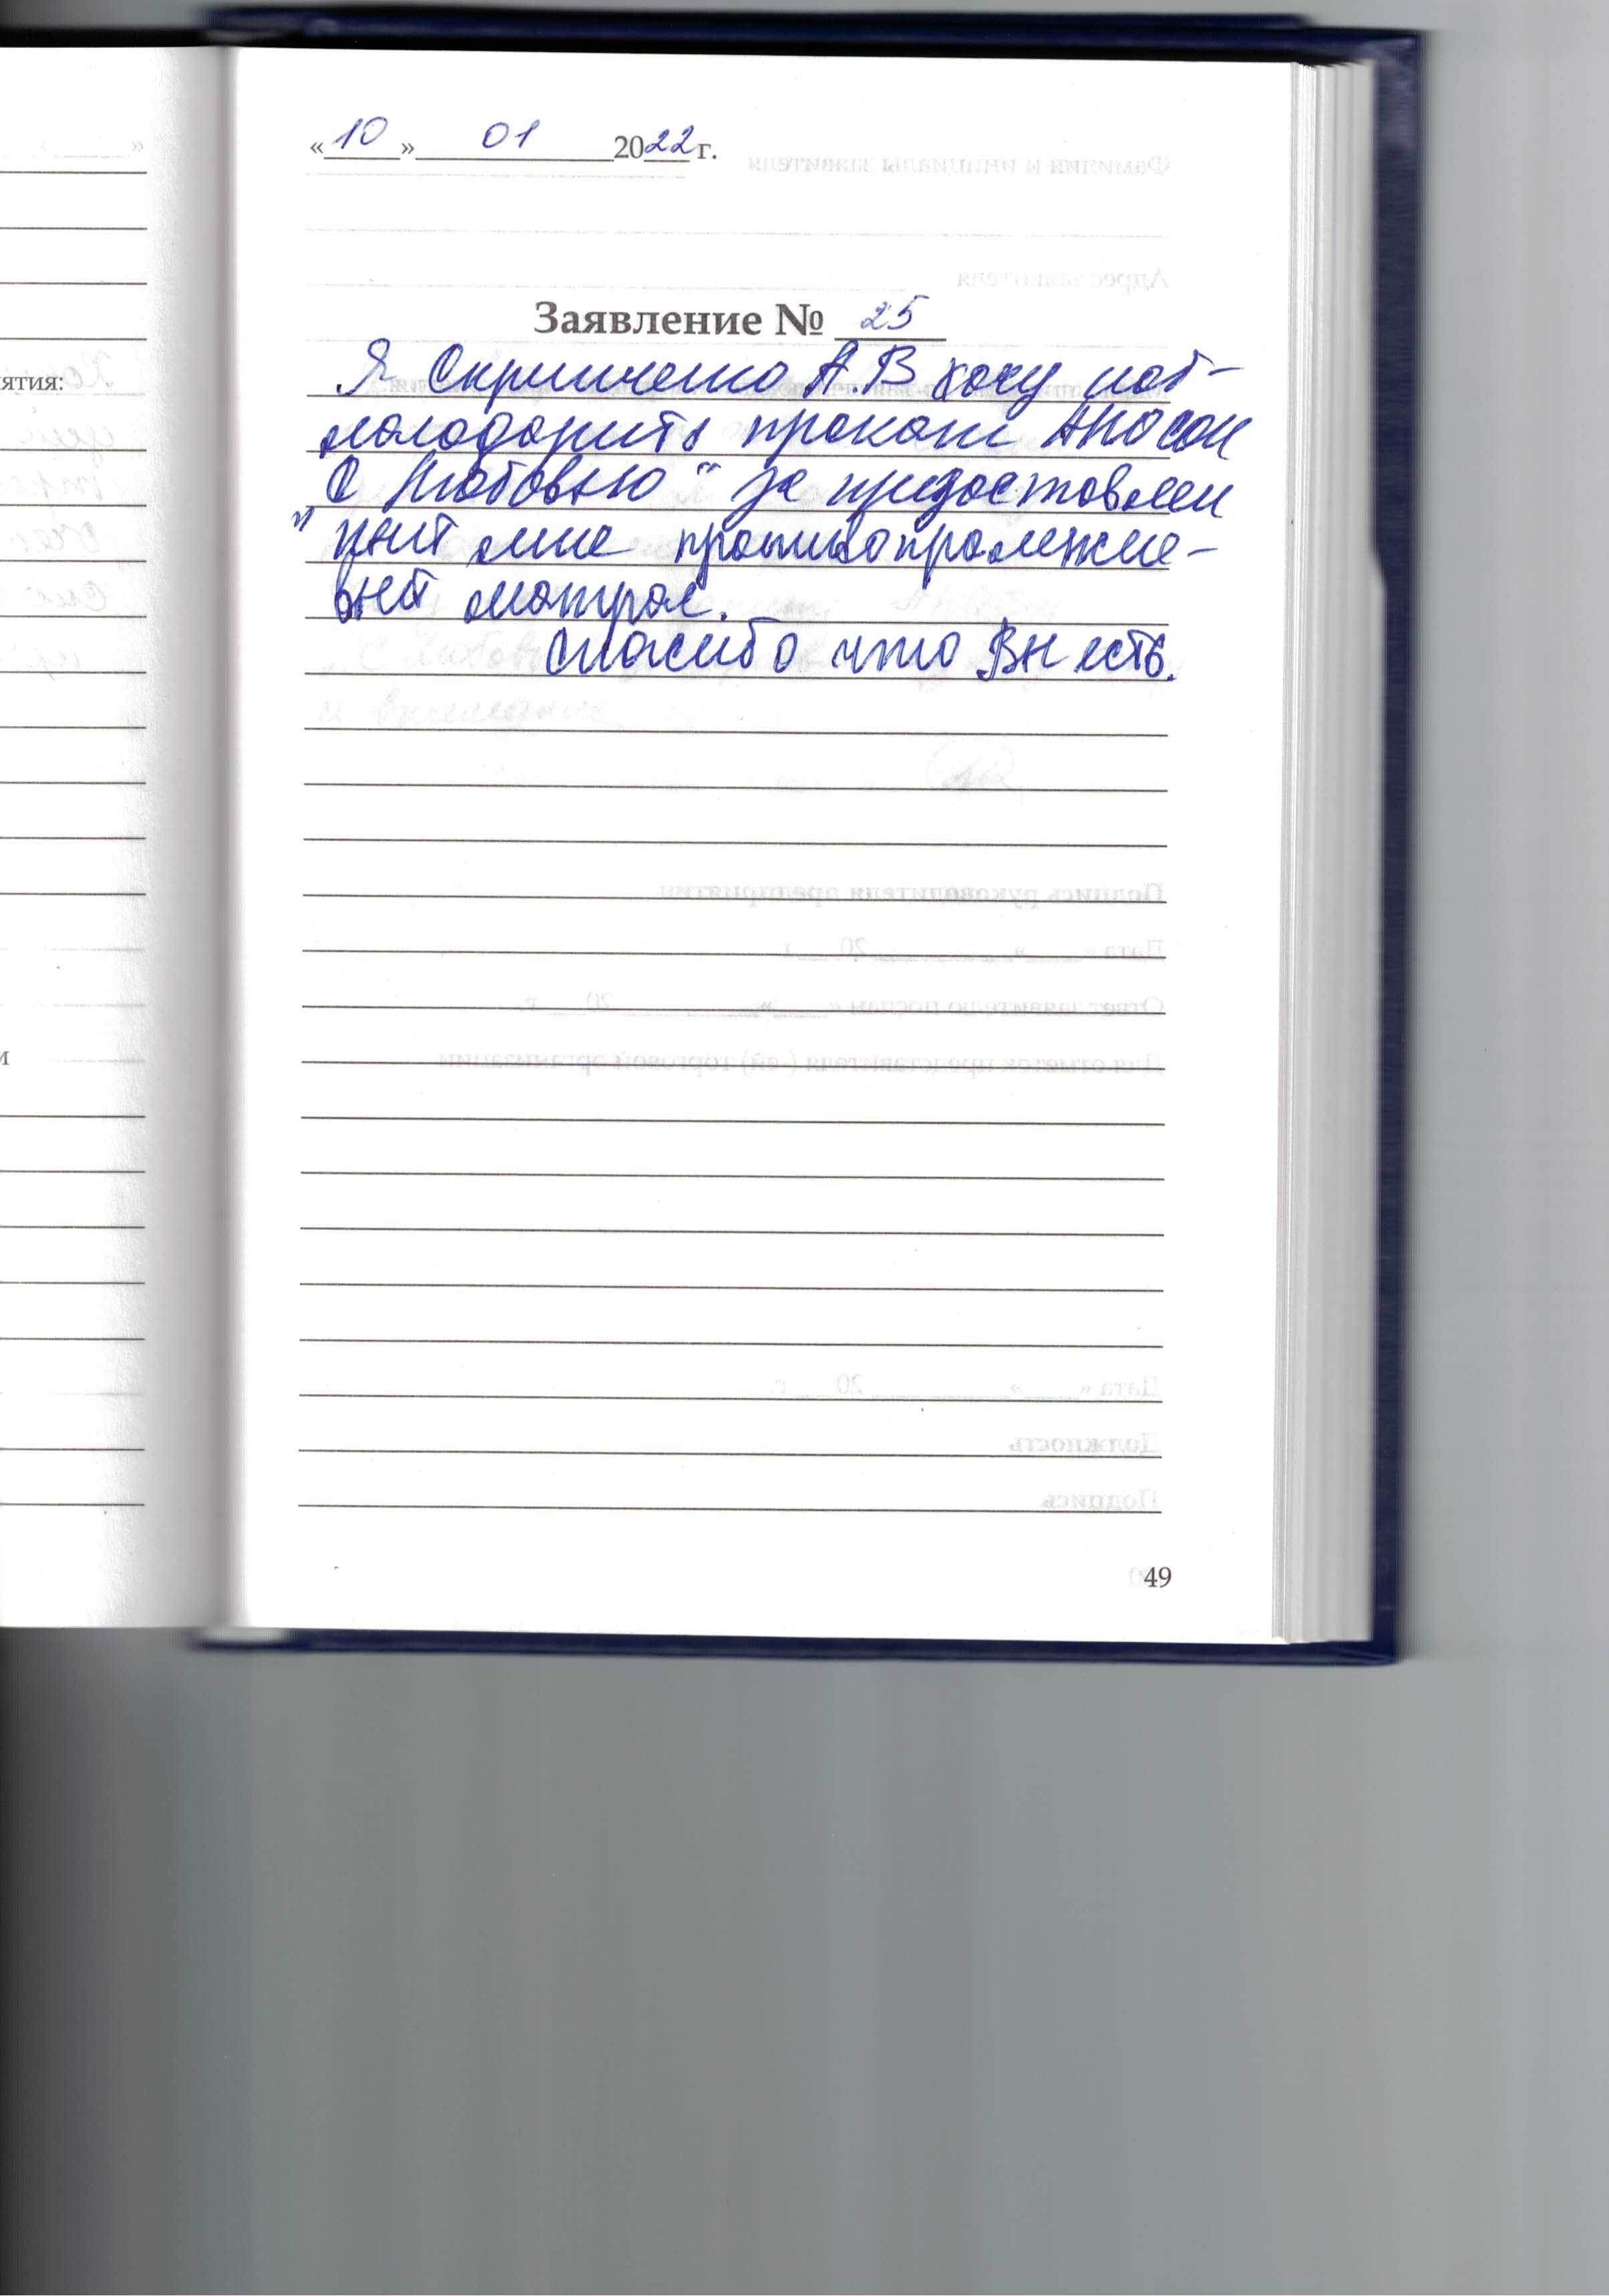 «10» 01 2022 г.
Заявление № 25
Я Скрипченко А.В хочу поб-
лалодарить прокат АНО СОН
С Любовью" за предоставлен
" ный мне противопролежне-
вый матрас.
Спасибо что Вы есть.
ятия:
и
49